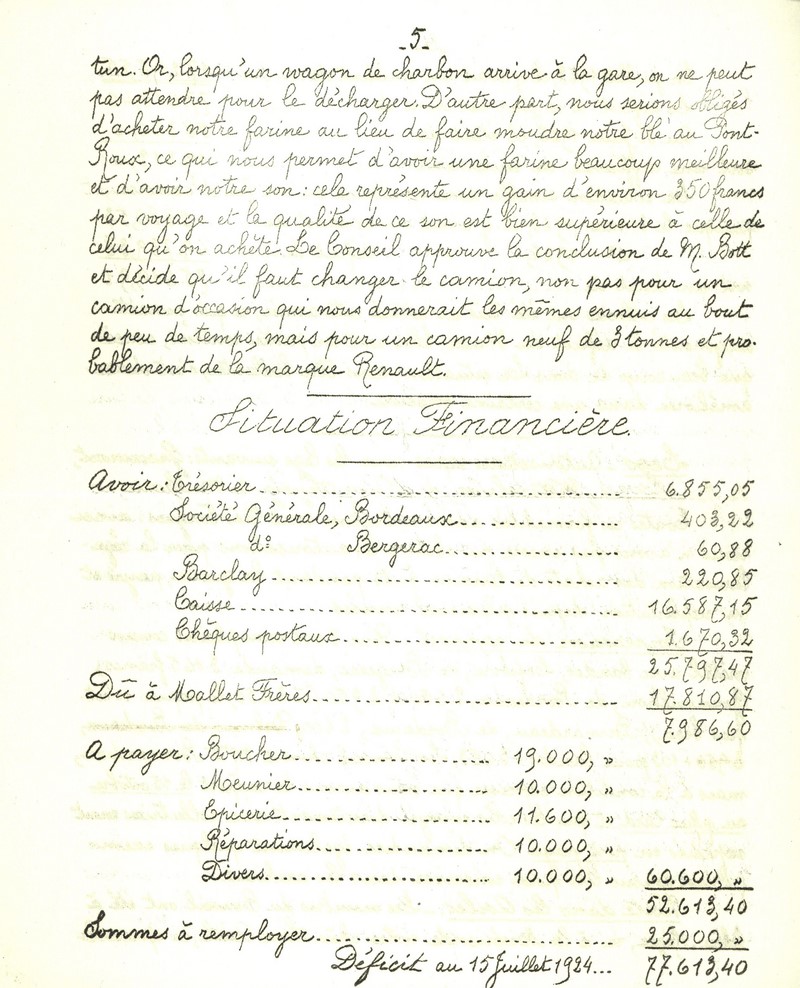 -5-
tun. Or, lorsqu'un wagon de charbon arrive à la gare, on ne peut
pas attendre pour le décharger. D'autre part, nous serions obligés
d'acheter notre farine au lieu de faire moudre notre blé au Pont-
Roux, ce qui nous permet d'avoir une farine beaucoup meilleure
et d'avoir notre son: cela représente un gain d'environ 350 francs
par voyage et la qualité de ce son est bien supérieure à celle de
celui qu'on achète. Le Conseil approuve la conclusion de M. Bott
et décide qu'il faut changer le camion, non pas pour un
camion d'occasion qui nous donnerait les mêmes ennuis au bout
de peu de temps, mais pour un camion neuf de 3 tonnes et pro-
bablement de la marque Renault.
Situation Financière.
Avoir: Trésorier........................ 6.855,05
Société Générale, Bordeaux............ 403,22
d° Bergerac............ 60,88
Barclay........................ 220,85
Caisse........................ 16.587,15
Chèques postaux.................. 1.670,32
25.797,47
Dû à Mallet Frères.................. 17.810,87
7.986,60
A payer: Boucher............ 19.000, "
Meunier............ 10.000, "
Epicerie............ 11.600, "
Réparations............ 10.000, "
Divers............ 10.000, " 60.600, "
52.613,40
Sommes à remployer.................. 25.000, "
Déficit au 15 Juillet 1924... 77.613,40